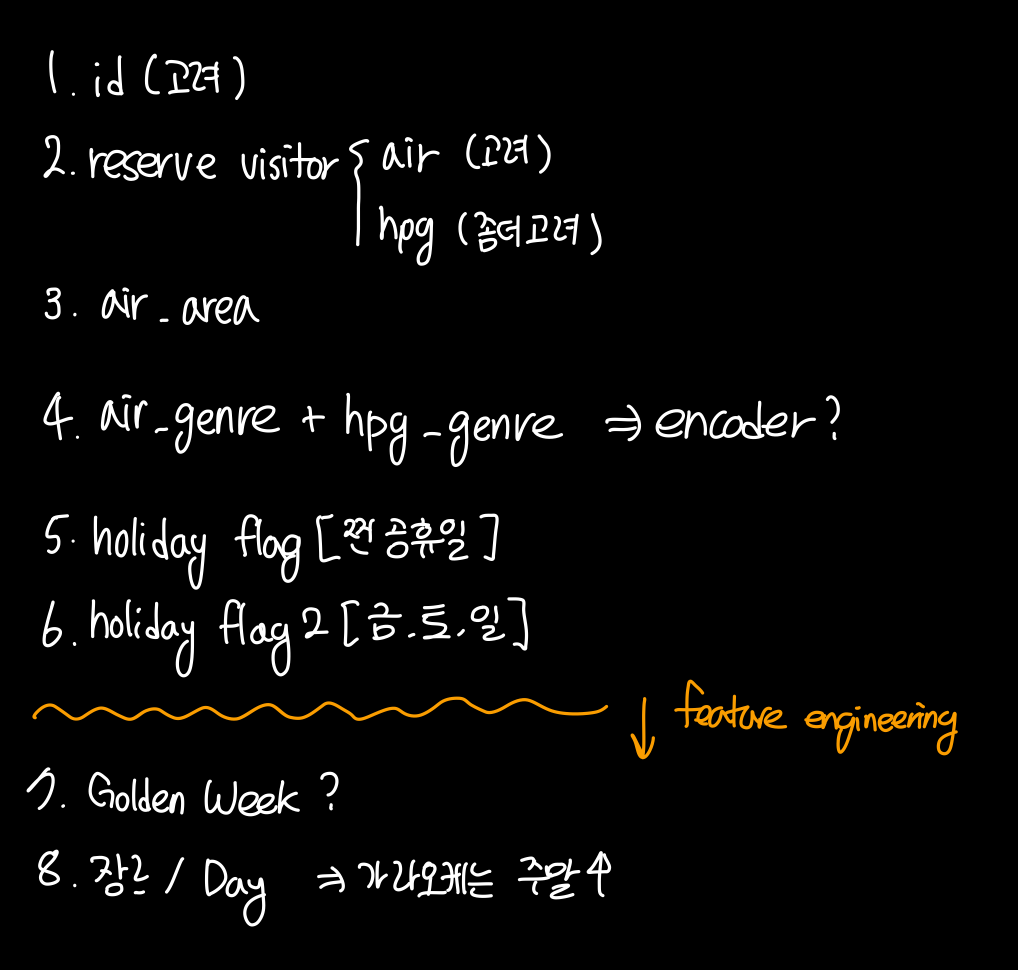 1. id (고려)
2. reserve visitor { air (고려)
hpg (좀더고려)
3. air_area
4. air_genre + hpg_genre ⇒ encoder?
5. holiday flag [찐 공휴일]
6. holiday flag 2 [금.토.일]
↓ feature engineering
7. Golden Week ?
8. 장르 / Day ⇒ 가라오케는 주말↑